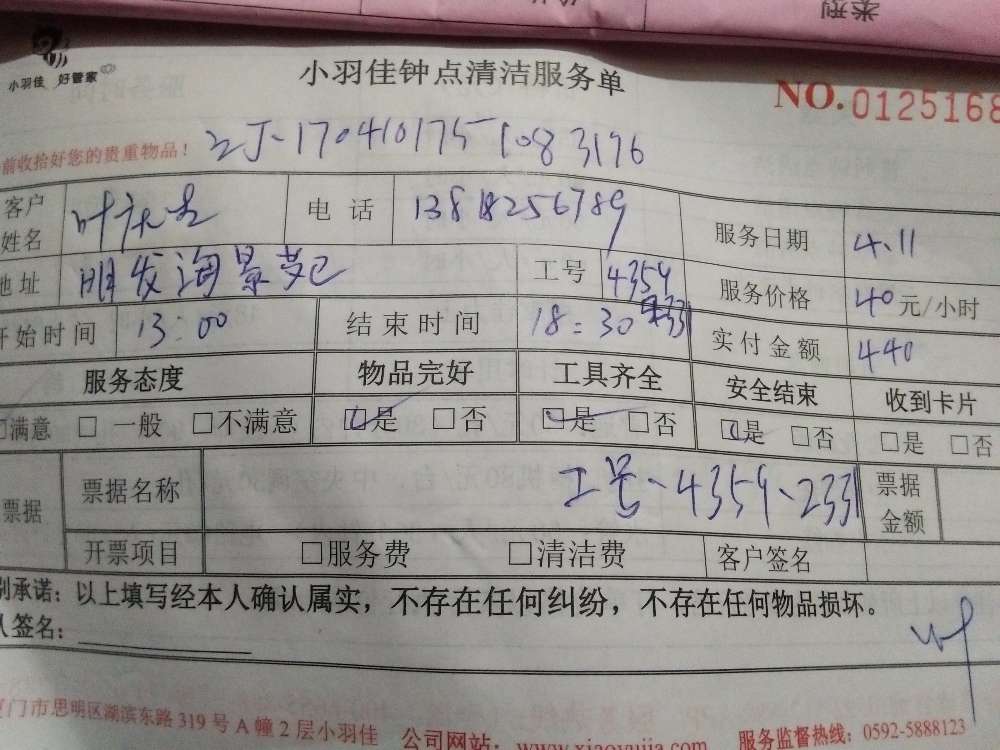 类型
小羽佳 好管家
小羽佳钟点清洁服务单
NO.0125168
前收拾好您的贵重物品！
170410175 1083196
客户姓名 叶 电话 13818256789 服务日期 4.11
地址 明发海景苑 工号 4359 2331 服务价格 40元/小时
开始时间 13:00 结束时间 18:30 实付金额 440
服务态度 物品完好 工具齐全 安全结束 收到卡片
□满意 □ 一般 □不满意 □是 □否 □是 □否 □是 □否 □是 □否
票据 票据名称 工号-4359-2331 票据金额
开票项目 □服务费 □清洁费 客户签名
别承诺：以上填写经本人确认属实，不存在任何纠纷，不存在任何物品损坏。
人签名： 叶
厦门市思明区湖滨东路319号A幢2层小羽佳 公司网站：www.xiaoyujia.com 服务监督热线：0592-5888123